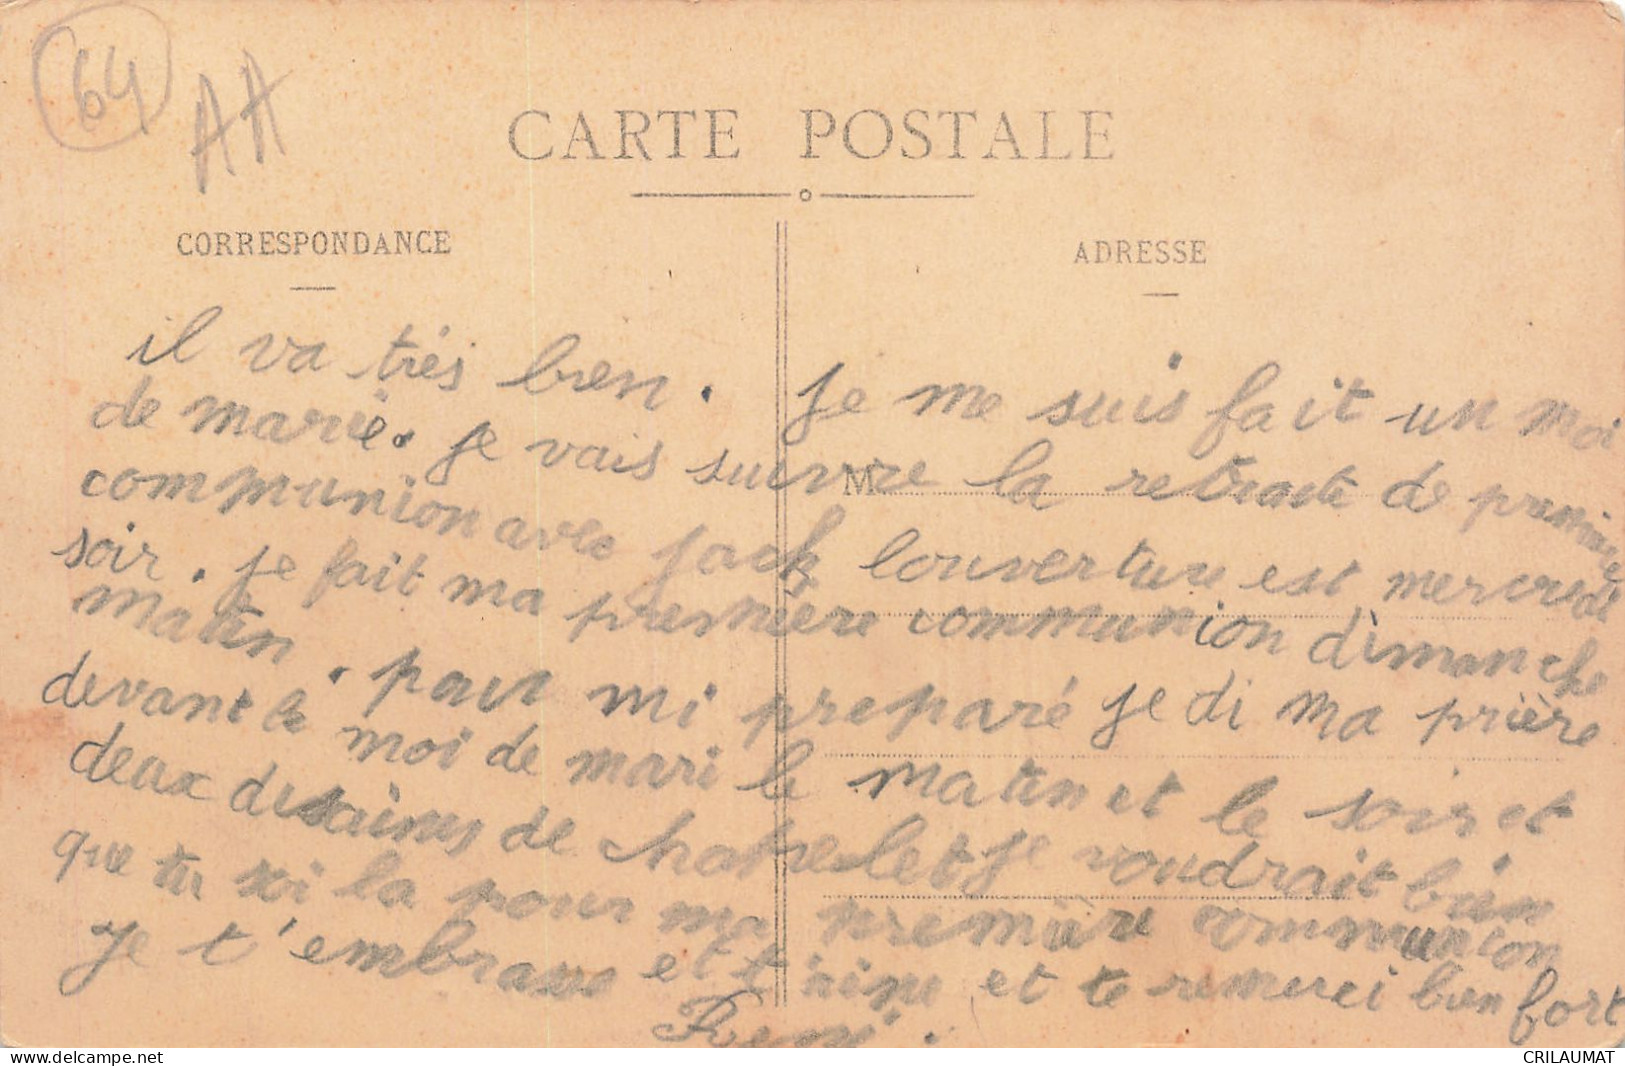 64
AA
CARTE POSTALE
CORRESPONDANCE
ADRESSE
M
il va très bien. Je me suis fait un moi
de marie. Je vais suivre la retraite de première
communion avec Jack louverture est mercredi
soir. Je fait ma première communion dimanche
matin. pour mi preparé je di ma prière
devant le moi de mari le matin et le soir et
deux desaines de chapelet je voudrait bien
que tu soi la pour ma première communion
Je t'embrasse et t'aime et te remerci bien fort
René.
CRILAUMAT